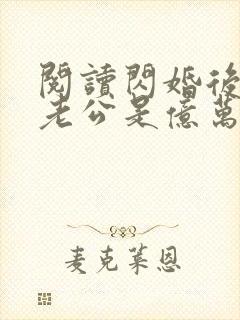 閱讀閃婚後
老公是億萬
麦克莱恩